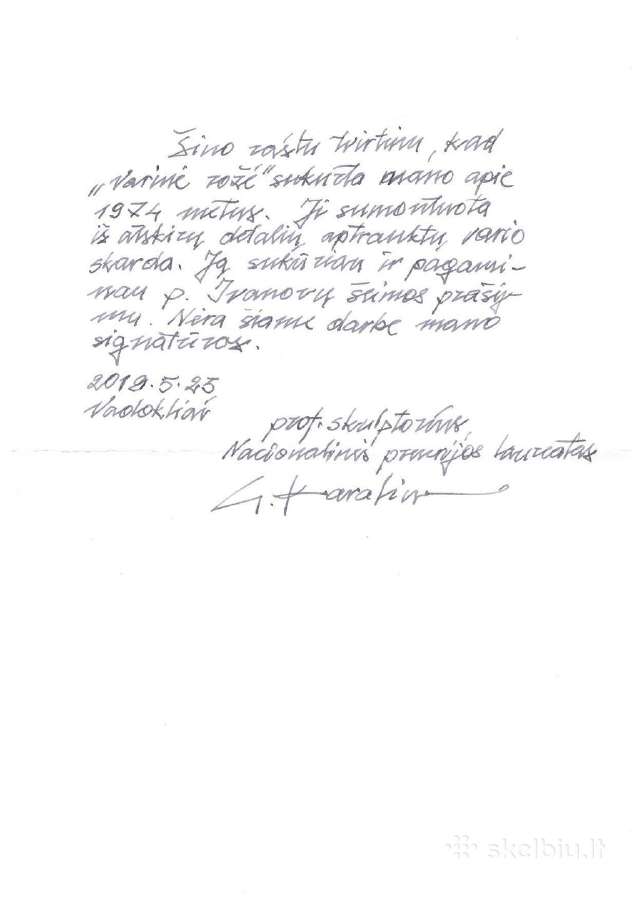 Šiuo raštu tvirtinu, kad
„Varinė rožė“ sukurta mano apie
1974 metus. Ji sumontuota
iš atskirų detalių, aptrauktų vario
skarda. Ją sukūriau ir pagami-
nau p. Ivanovų šeimos prašy-
mu. Nėra šiame darbe mano
signatūros.
2019.5.25
Vadokliai
prof. skulptorius,
Nacionalinės premijos laureatas
skelbiu.lt